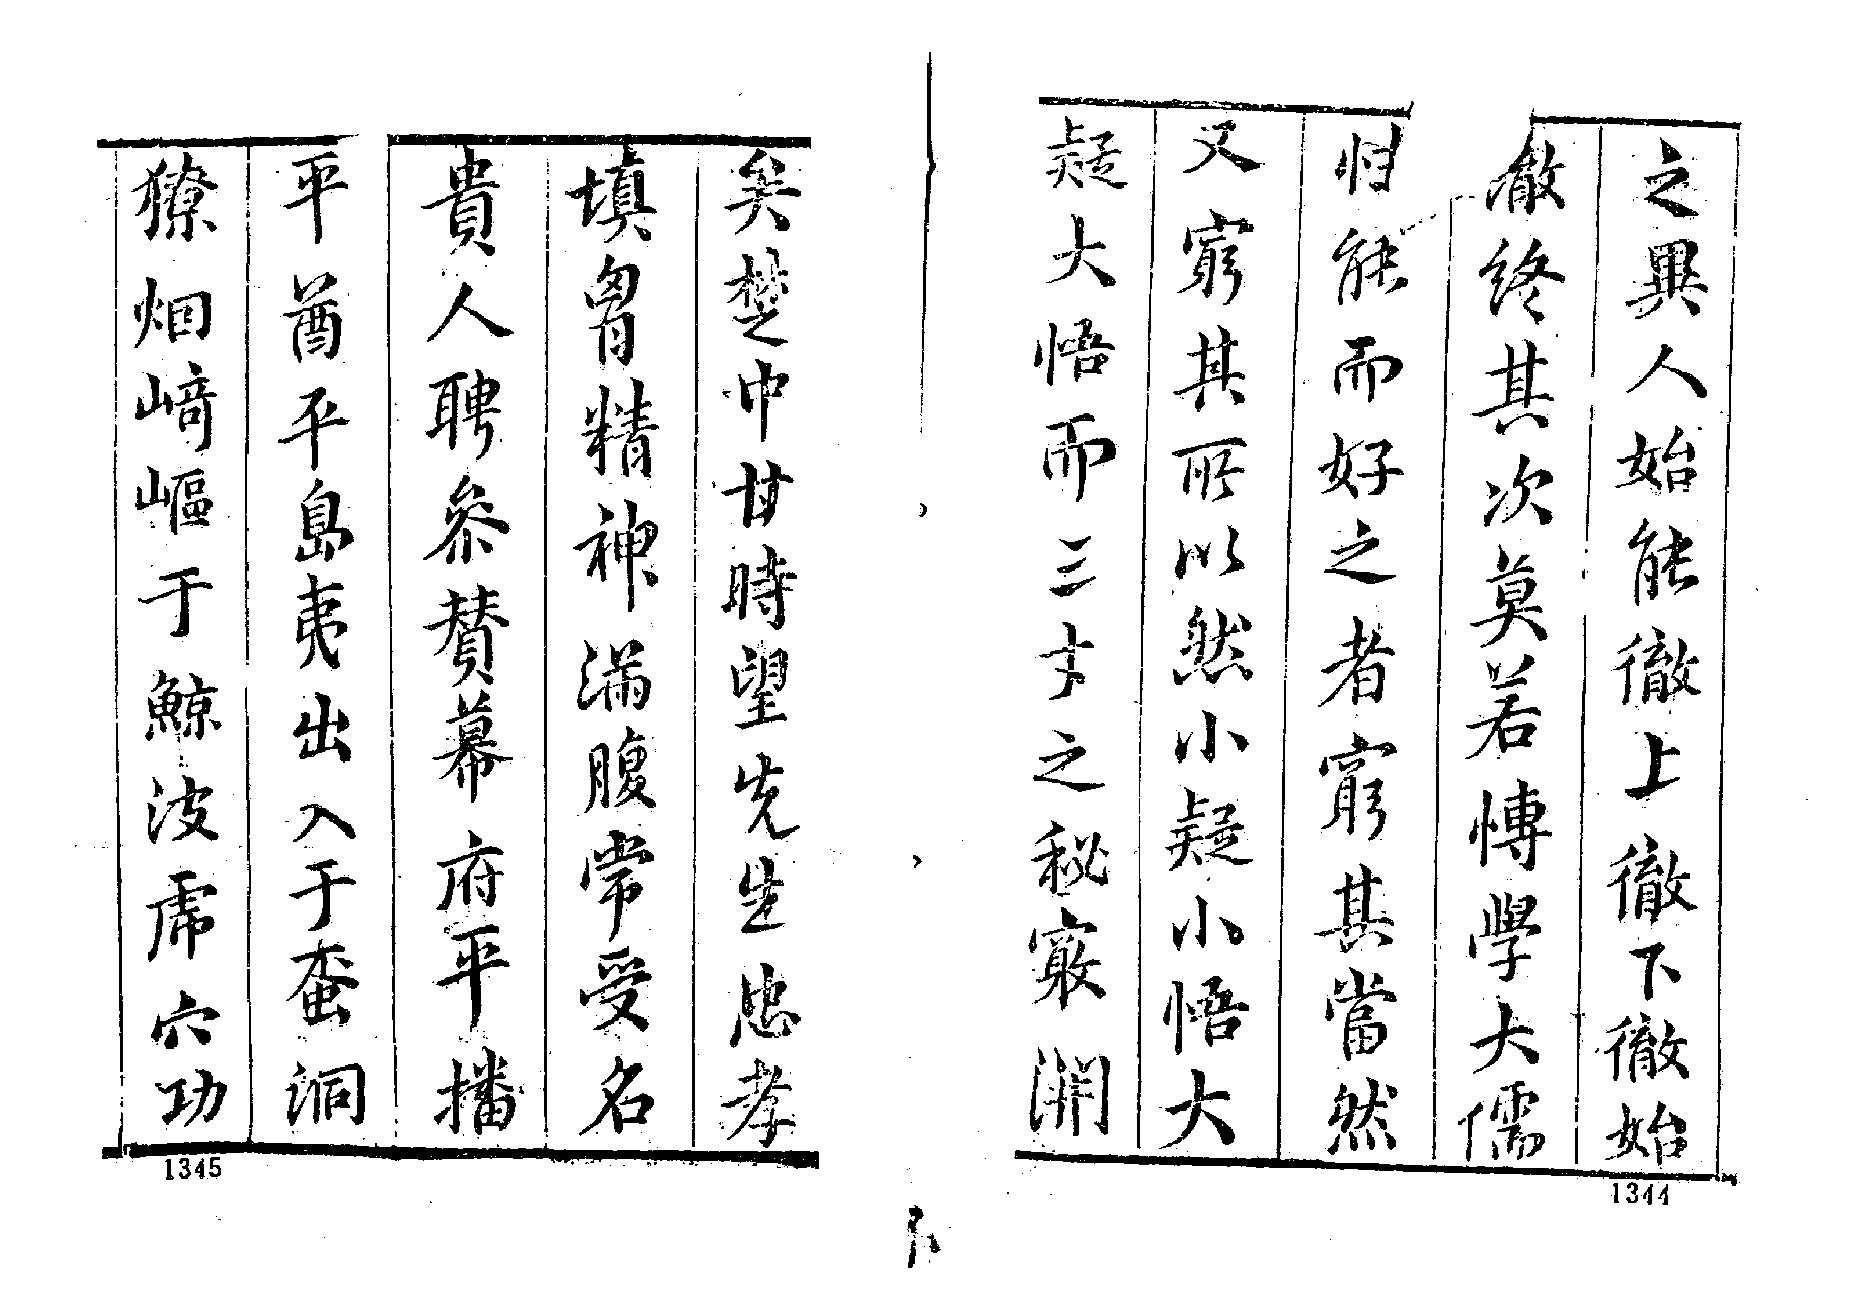 之異人始能徹上徹下徹始
徹終其次莫若博學大儒
惟能而好之者窮其當然
又窮其所以然小疑小悟大
疑大悟而三才之秘竅開
矣楚中甘時望先生忠孝
填胷精神滿腹常受名
貴人聘參賛幕府平播
平酋平島夷出入于蛮洞
獠烟﨑嶇于鯨波虎穴功
1344
1345
下